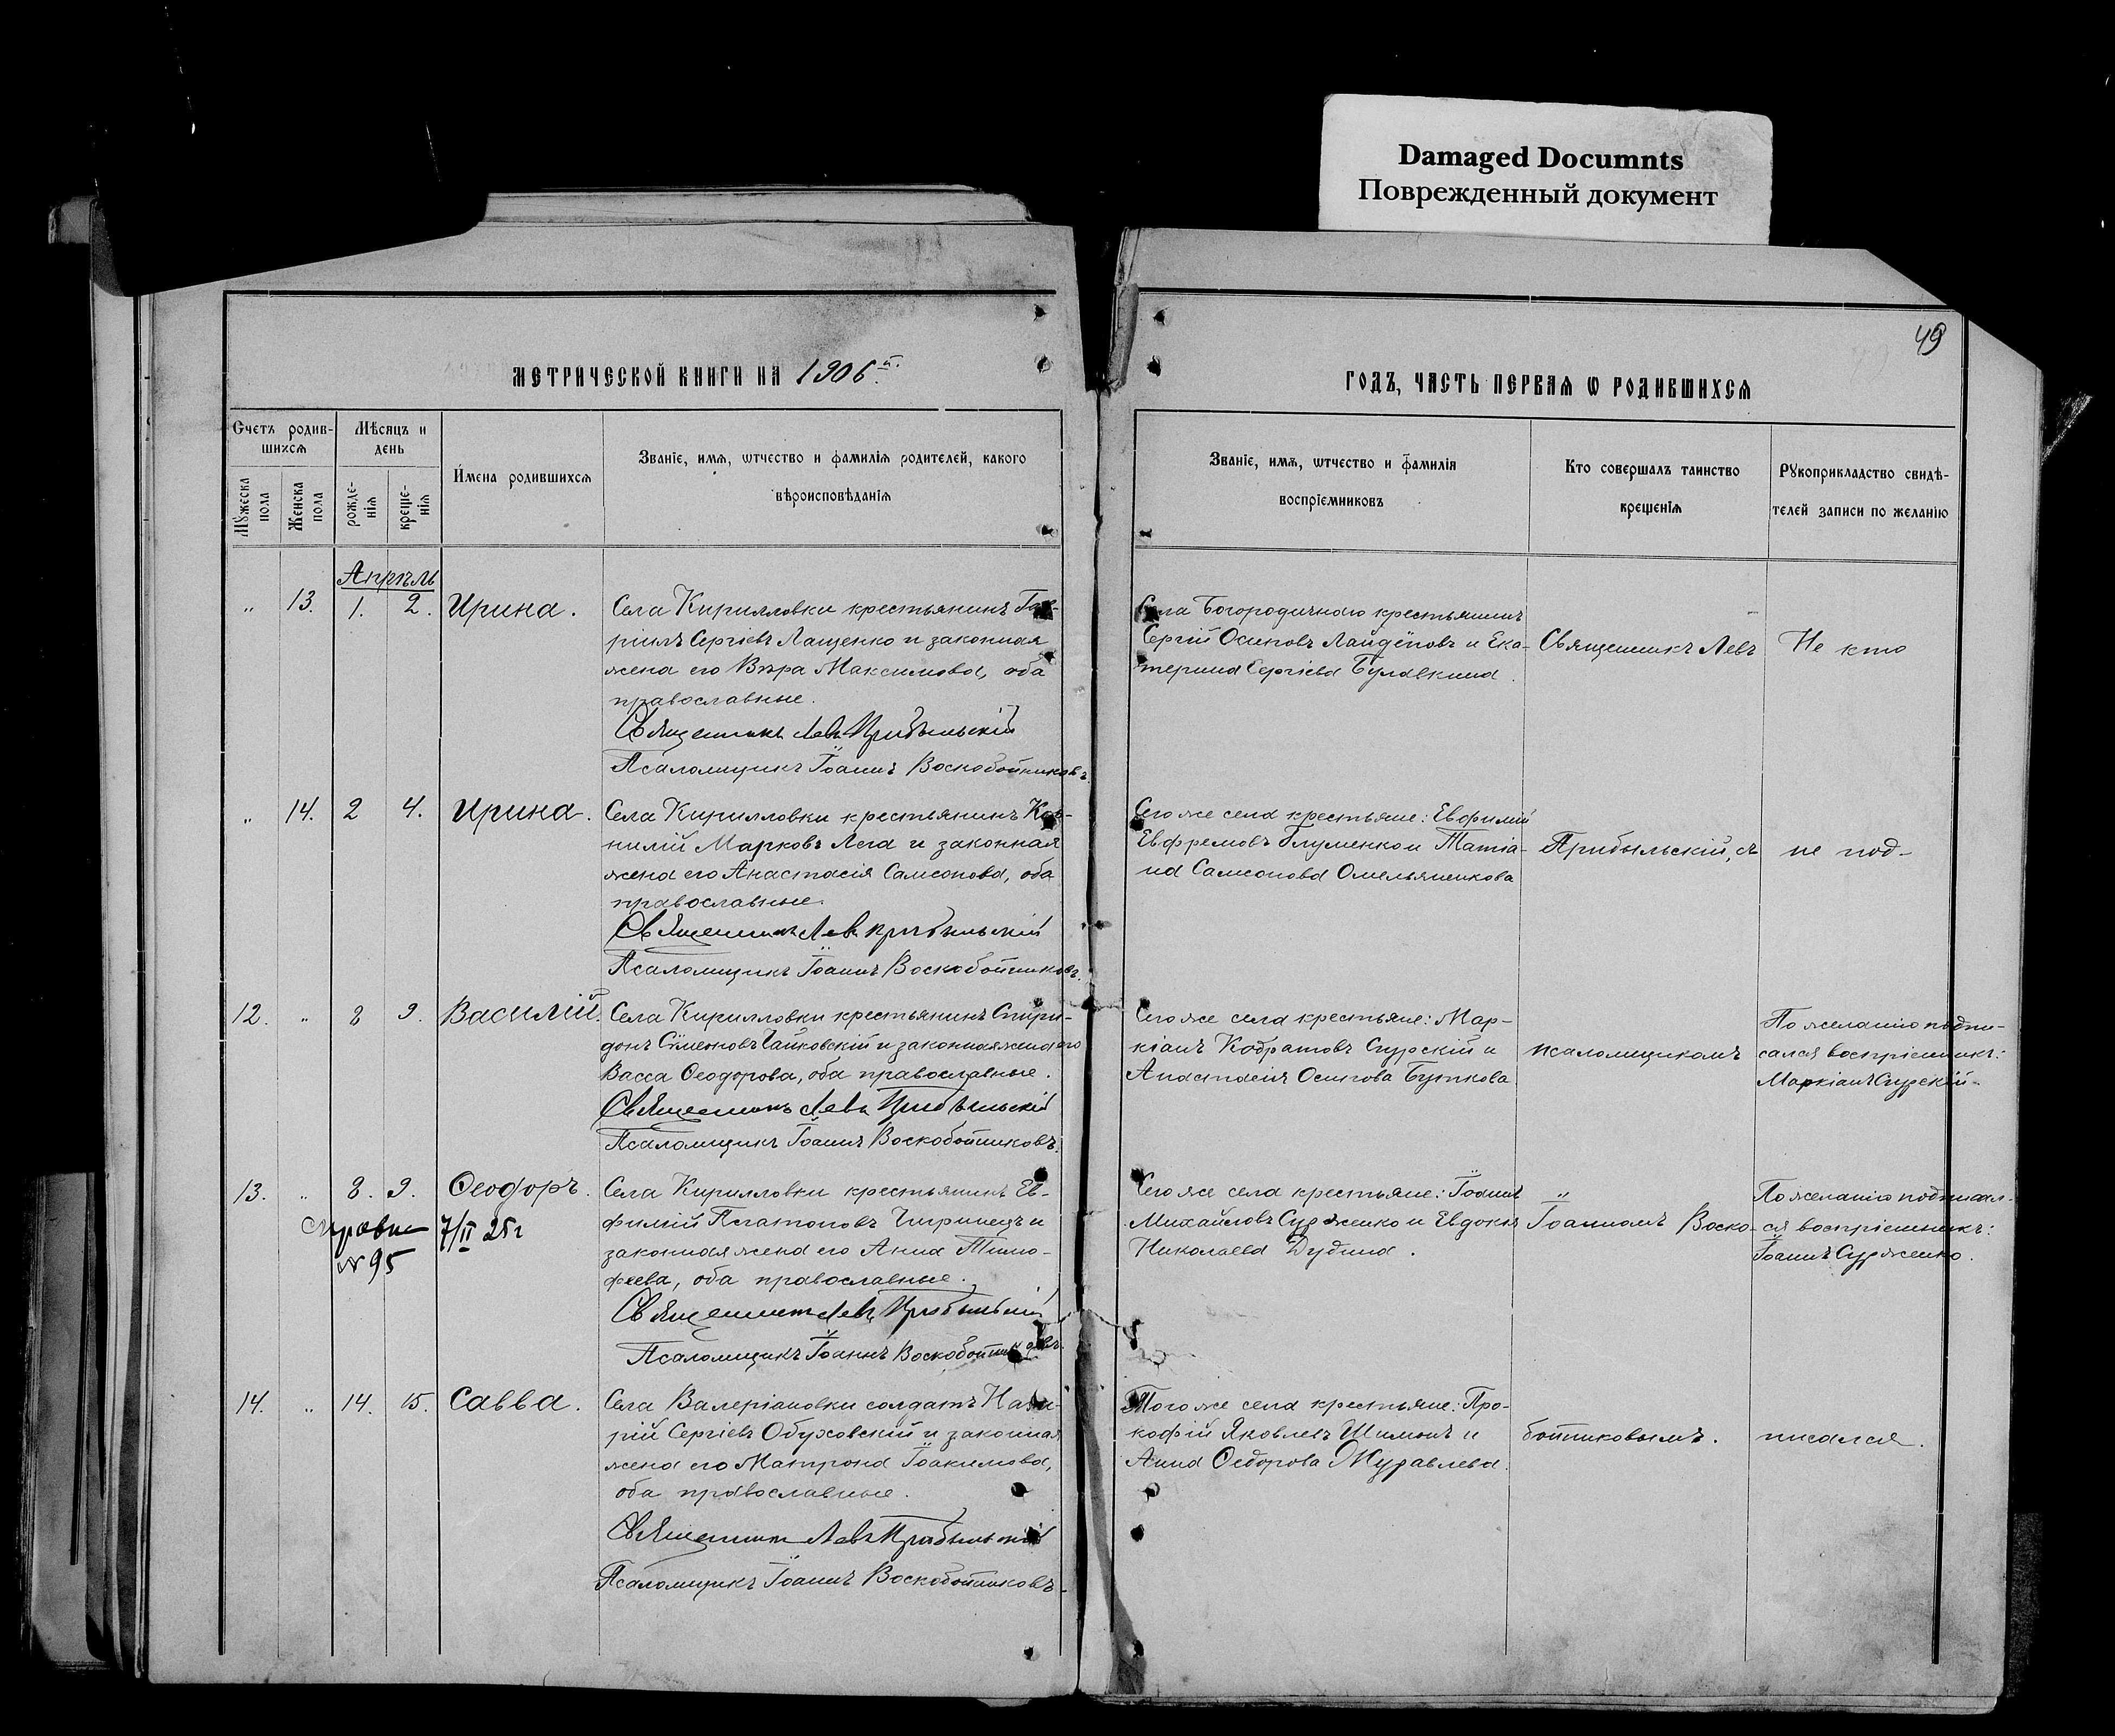 Damaged Documnts
Поврежденный документ
49
МЕТРИЧЕСКОЙ КНИГИ НА 1906й.
ГОДЪ, ЧАСТЬ ПЕРВАЯ Ѡ РОДИВШИХСЯ
Счетъ родив-
шихся
Мѣсяцъ и
день
Мужеска пола
Женска пола
рожде-
нія
креще-
нія
Имена родившихся
Званіе, имя, ѡтчество и фамилія родителей, какого
вѣроисповѣданія
Званіе, имя, ѡтчество и фамилія
воспріемниковъ
Кто совершалъ таинство
крещенія
Рукоприкладство свидѣ-
телей записи по желанію
Апрѣль
" 13. 1. 2. Ирина.
Села Кирилловки крестьянинъ Гав-
рилъ Сергіевъ Лащенко и законная
жена его Вѣра Максимова, оба
православные.
Священникъ Левъ Прибыльскій
Псаломщикъ Іоаннъ Воскобойниковъ.
Села Богородичнаго крестьянинъ
Сергій Осиповъ и Ека-
терина Сергіева Булавкина.
Священникъ Левъ
Не кто
" 14. 2 4. Ирина.
Села Кирилловки крестьянинъ Кор-
нилій Марковъ Лега и законная
жена его Анастасія Самсонова, оба
православные.
Священникъ Левъ Прибыльскій
Псаломщикъ Іоаннъ Воскобойниковъ.
Сего же села крестьяне: Евфимій
Ефремовъ Глуменко и Татіа-
на Самсонова Омельяненкова
Прибыльскій, съ
не под-
12. " 8 9. Василій.
Села Кирилловки крестьянинъ Спири-
донъ Сѵмеоновъ Чайковскій и законная жена его
Васса Ѳеодорова, оба православные.
Священникъ Левъ Прибыльскій
Псаломщикъ Іоаннъ Воскобойниковъ.
Сего же села крестьяне: Мар-
кіанъ Кодратовъ Сурскій и
Анастасія Осипова Буткова
псаломщикомъ
По желанію подпи-
сался воспріемникъ:
Маркіанъ Сурскій.
13. " 8. 9. Ѳеодоръ.
7/II 25г
№ 95
Села Кирилловки крестьянинъ Ев-
фимій Платоновъ Чигринецъ и
законная жена его Анна Тимо-
феева, оба православные.
Священникъ Левъ Прибыльскій
Псаломщикъ Іоаннъ Воскобойниковъ.
Сего же села крестьяне: Іоаннъ
Михайловъ Сурженко и Евдокія
Николаева Дудина.
Іоанномъ Воско-
По желанію подписал-
ся воспріемникъ:
Іоаннъ Сурженко.
14. " 14. 15. Савва.
Села Валеріановки солдатъ
Сергіевъ Обуховскій и законная
жена его Матрона Іоакимова,
оба православные.
Священникъ Левъ Прибыльскій
Псаломщикъ Іоаннъ Воскобойниковъ.
Того же села крестьяне: Про-
кофій Яковлевъ Шимонъ и
Анна Ѳедорова Журавлева.
бойниковымъ.
писался.